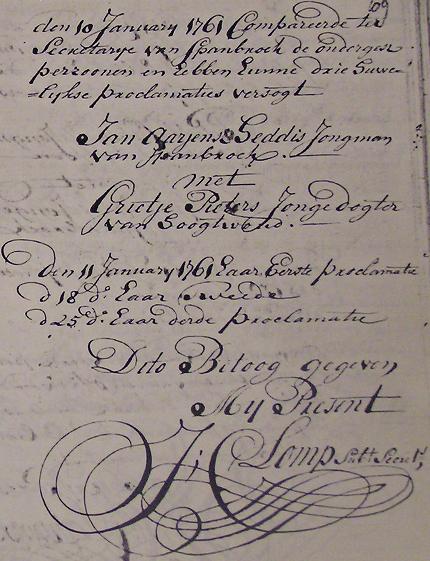 den 10 January 1761 Compareerde ter
Secretarye van Spanbroek de onderges
perzoonen en hebben hunne drie huwe-
=lykse proclamaties versogt
Jan Aarjens Seddis Jongman
van Spanbroek.
met
Grietje Pieters Jongedogter
van Hoogtwoud.
Den 11 January 1761 haar Eerste proclamatie
d 18 do. haar Tweede
d 25 do. haar derde proclamatie
Dito Betoog gegeven
My Present
J: C Lomp Subt Secrets,